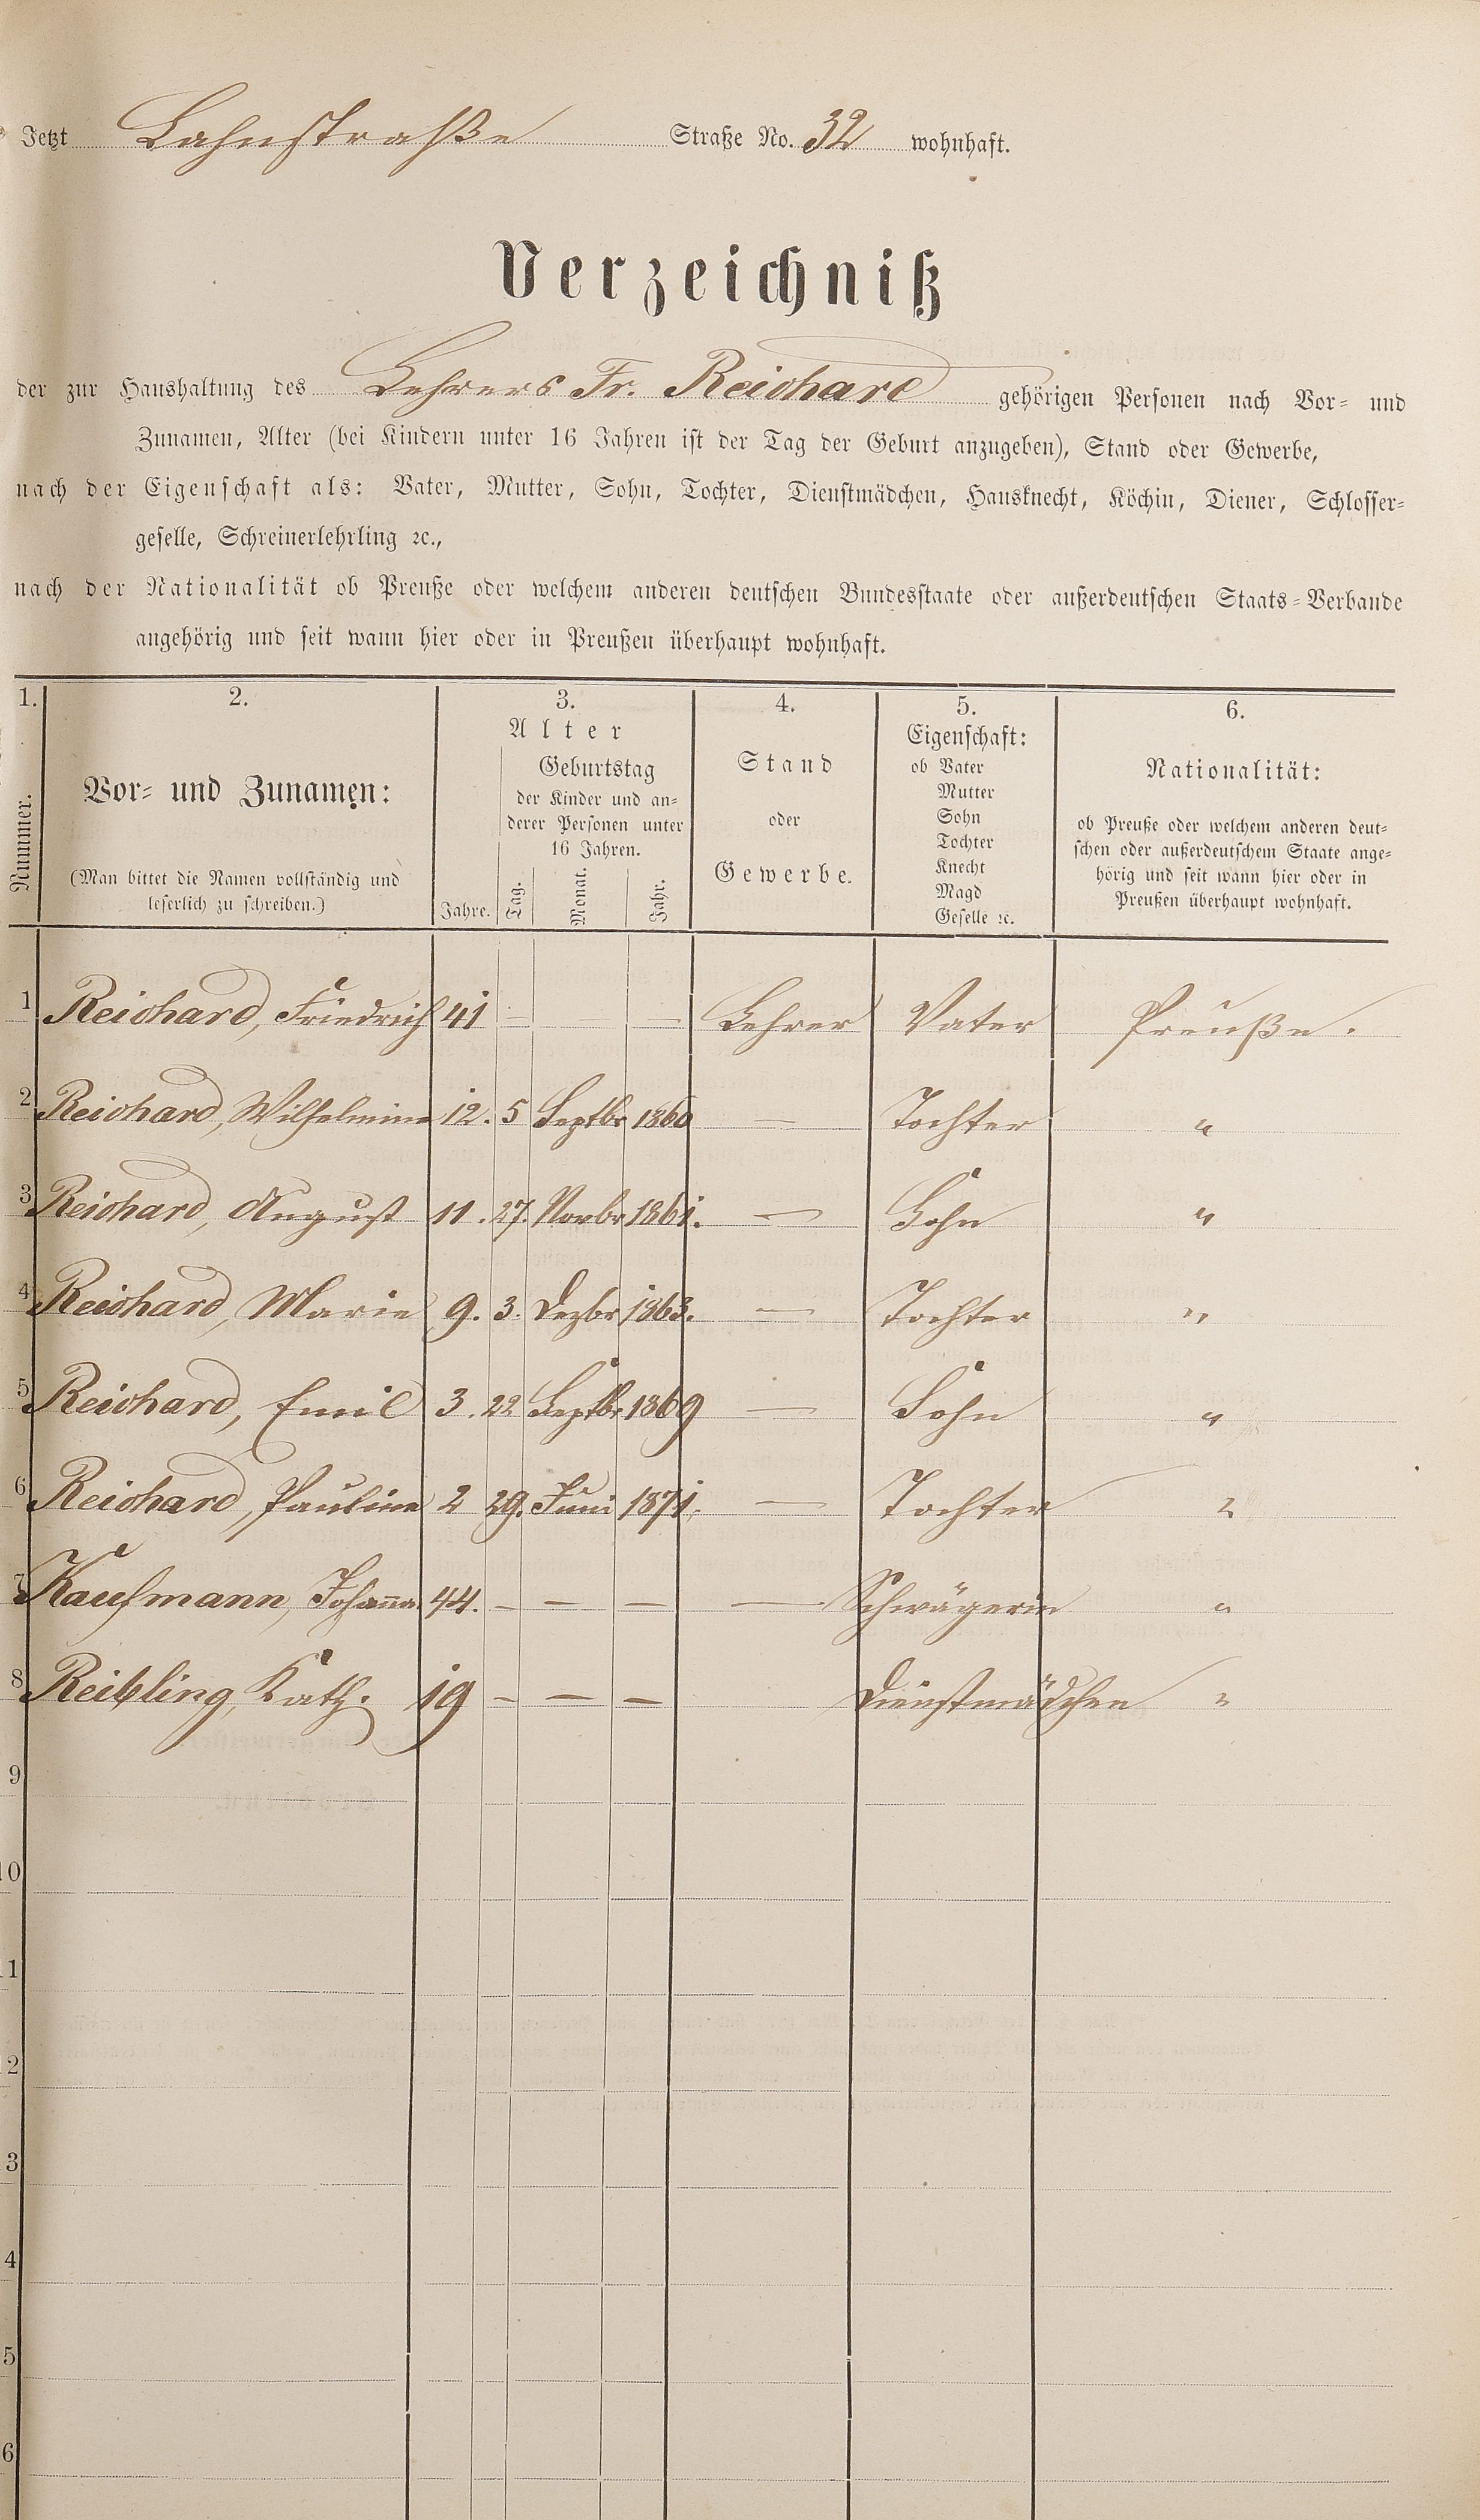 Jetzt Lahnstraße Straße No. 32 wohnhaft.
Verzeichniß
der zur Haushaltung des Lehrers Fr. Reichard gehörigen Personen nach Vor- und
Zunamen, Alter (bei Kindern unter 16 Jahren ist der Tag der Geburt anzugeben), Stand oder Gewerbe,
nach der Eigenschaft als: Vater, Mutter, Sohn, Tochter, Dienstmädchen, Hausknecht, Köchin, Diener, Schlosser-
geselle, Schreinerlehrling ꝛc.,
nach der Nationalität ob Preuße oder welchem anderen deutschen Bundesstaate oder außerdeutschen Staats-Verbande
angehörig und seit wann hier oder in Preußen überhaupt wohnhaft.
1.
Nummer.
2.
Vor- und Zunamen:
(Man bittet die Namen vollständig und
leserlich zu schreiben.)
3.
Alter
Geburtstag
der Kinder und an-
derer Personen unter
16 Jahren.
Jahre. Tag. Monat. Jahr.
4.
Stand
oder
Gewerbe.
5.
Eigenschaft:
ob Vater
Mutter
Sohn
Tochter
Knecht
Magd
Geselle ꝛc.
6.
Nationalität:
ob Preuße oder welchem anderen deut-
schen oder außerdeutschem Staate ange-
hörig und seit wann hier oder in
Preußen überhaupt wohnhaft.
1 Reichard, Friedrich 41 — — — Lehrer Vater Preuße.
2 Reichard, Wilhelmine 12. 5 Septbr 1860 — Tochter "
3 Reichard, August 11. 27. Novbr 1861. — Sohn "
4 Reichard, Marie 9. 3. Dezbr 1863. — Tochter "
5 Reichard, Emil 3. 22 Septbr. 1869 — Sohn "
6 Reichard, Pauline 2 29. Juni 1871. — Tochter "
7 Kaufmann, Johanna 44. — — — — Schwägerin "
8 Reibling, Kath. 19 — — — Dienstmädchen "
9
10
11
2
3
4
5
6